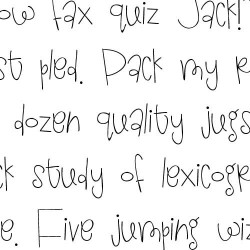 ow fax quiz Jack!
st pled. Pack my
dozen quality jugs
ck study of lexicogr
e. Five jumping wiz